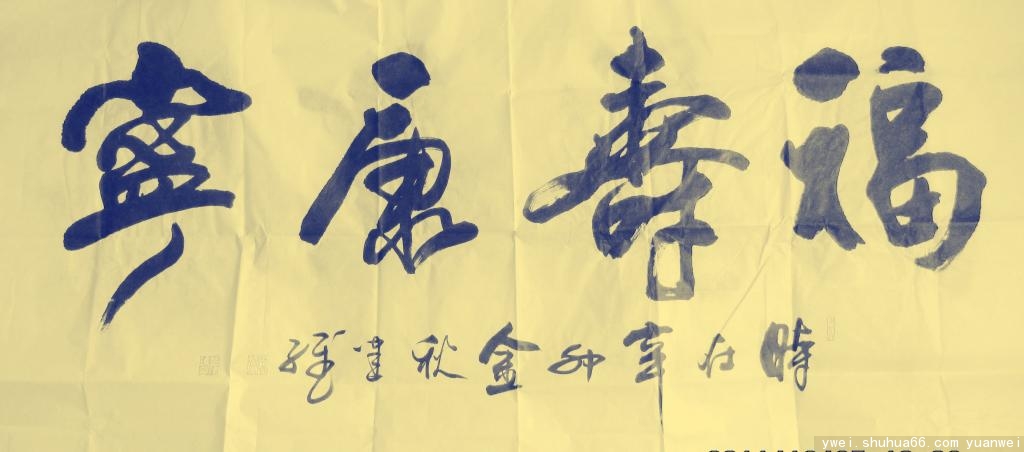 福壽康寧
時在辛卯金秋
ywei.shuhua66.com yuanwei